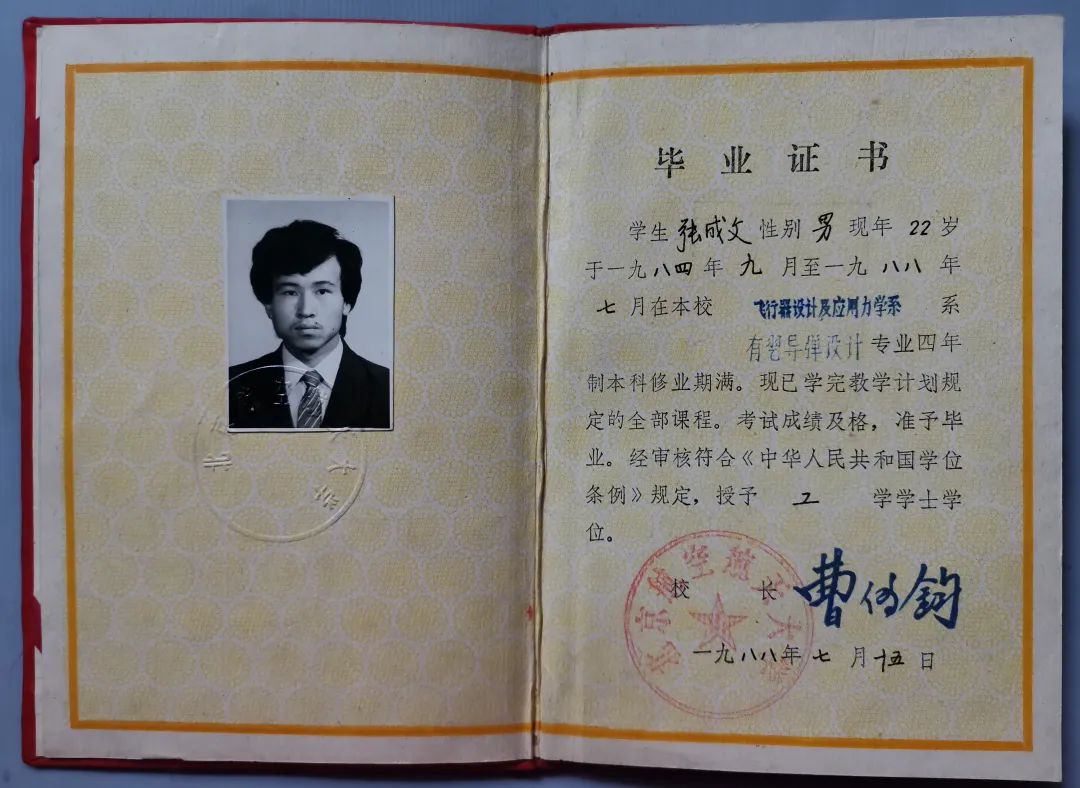 毕业证书
学生 张成文 性别 男 现年 22 岁
于一九八四年 九 月至一九八八年
七 月在本校 飞行器设计及应用力学系 系
有翼导弹设计 专业四年
制本科修业期满。现已学完教学计划规
定的全部课程。考试成绩及格，准予毕
业。经审核符合《中华人民共和国学位
条例》规定，授予 工 学学士学
位。
校 长 曹传钧
北京航空航天大学
一九八八年 七 月 十五 日